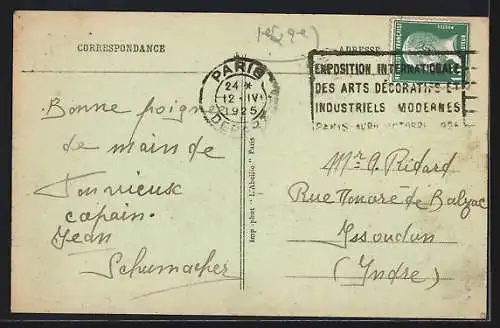 CORRESPONDANCE
ADRESSE
PARIS
24 *
12 - IV
1925
DEPART
EXPOSITION INTERNATIONALE
DES ARTS DÉCORATIFS ET
INDUSTRIELS MODERNES
PARIS AVRIL OCTOBRE 1925
Bonne poigne
de main de
Ton vieux
copain.
Jean
Schumacher
Imp.-phot "L'Abeille" Paris
Mr. A. Ridard
Rue Honoré de Balzac
Issoudun
(Indre)